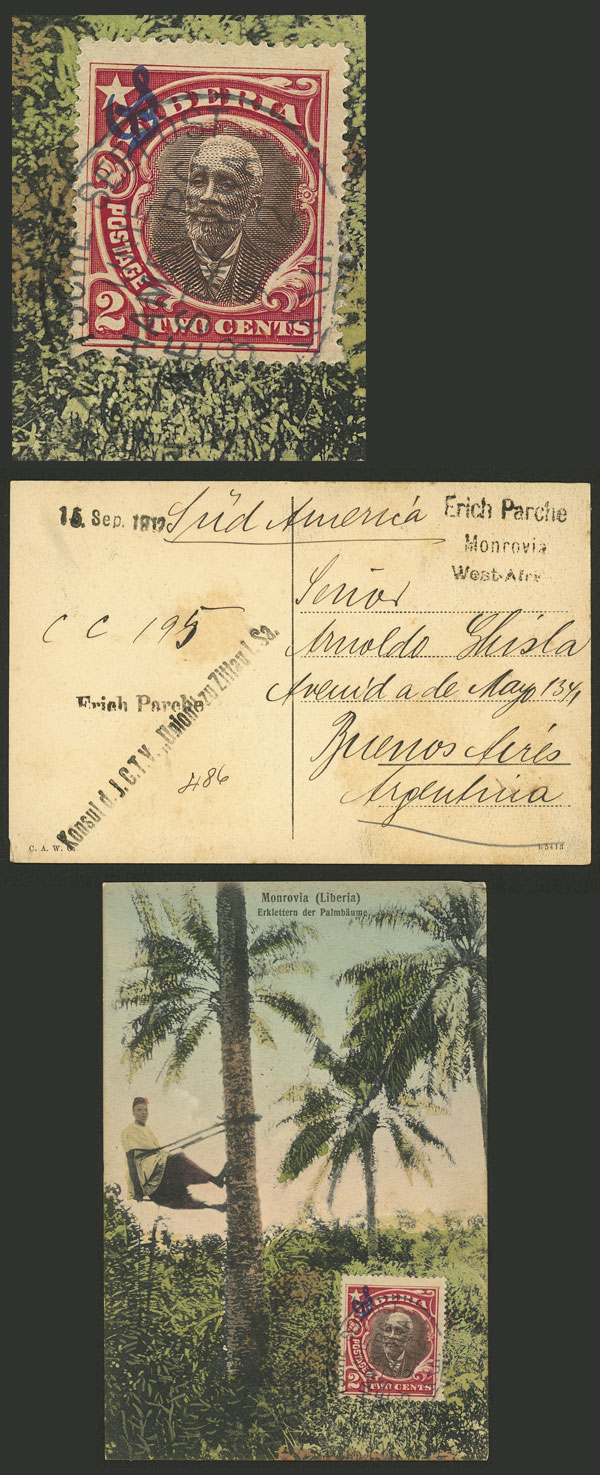 LIBERIA
POSTAGE
2
TWO CENTS
15. Sep. 1912
Süd America
Erich Parche
Monrovia
West-Afri
Señor
C C 195
Arnoldo Ghisla
Avenida de Mayo 1341
Erich Parche
Konsul d. J.C.T.V. „Union“ zu Zittau i. Sa.
Buenos Aires
486
Argentina
C. A. W.
L5413
Monrovia (Liberia)
Erklettern der Palmbäume
LIBERIA
POSTAGE
2
TWO CENTS